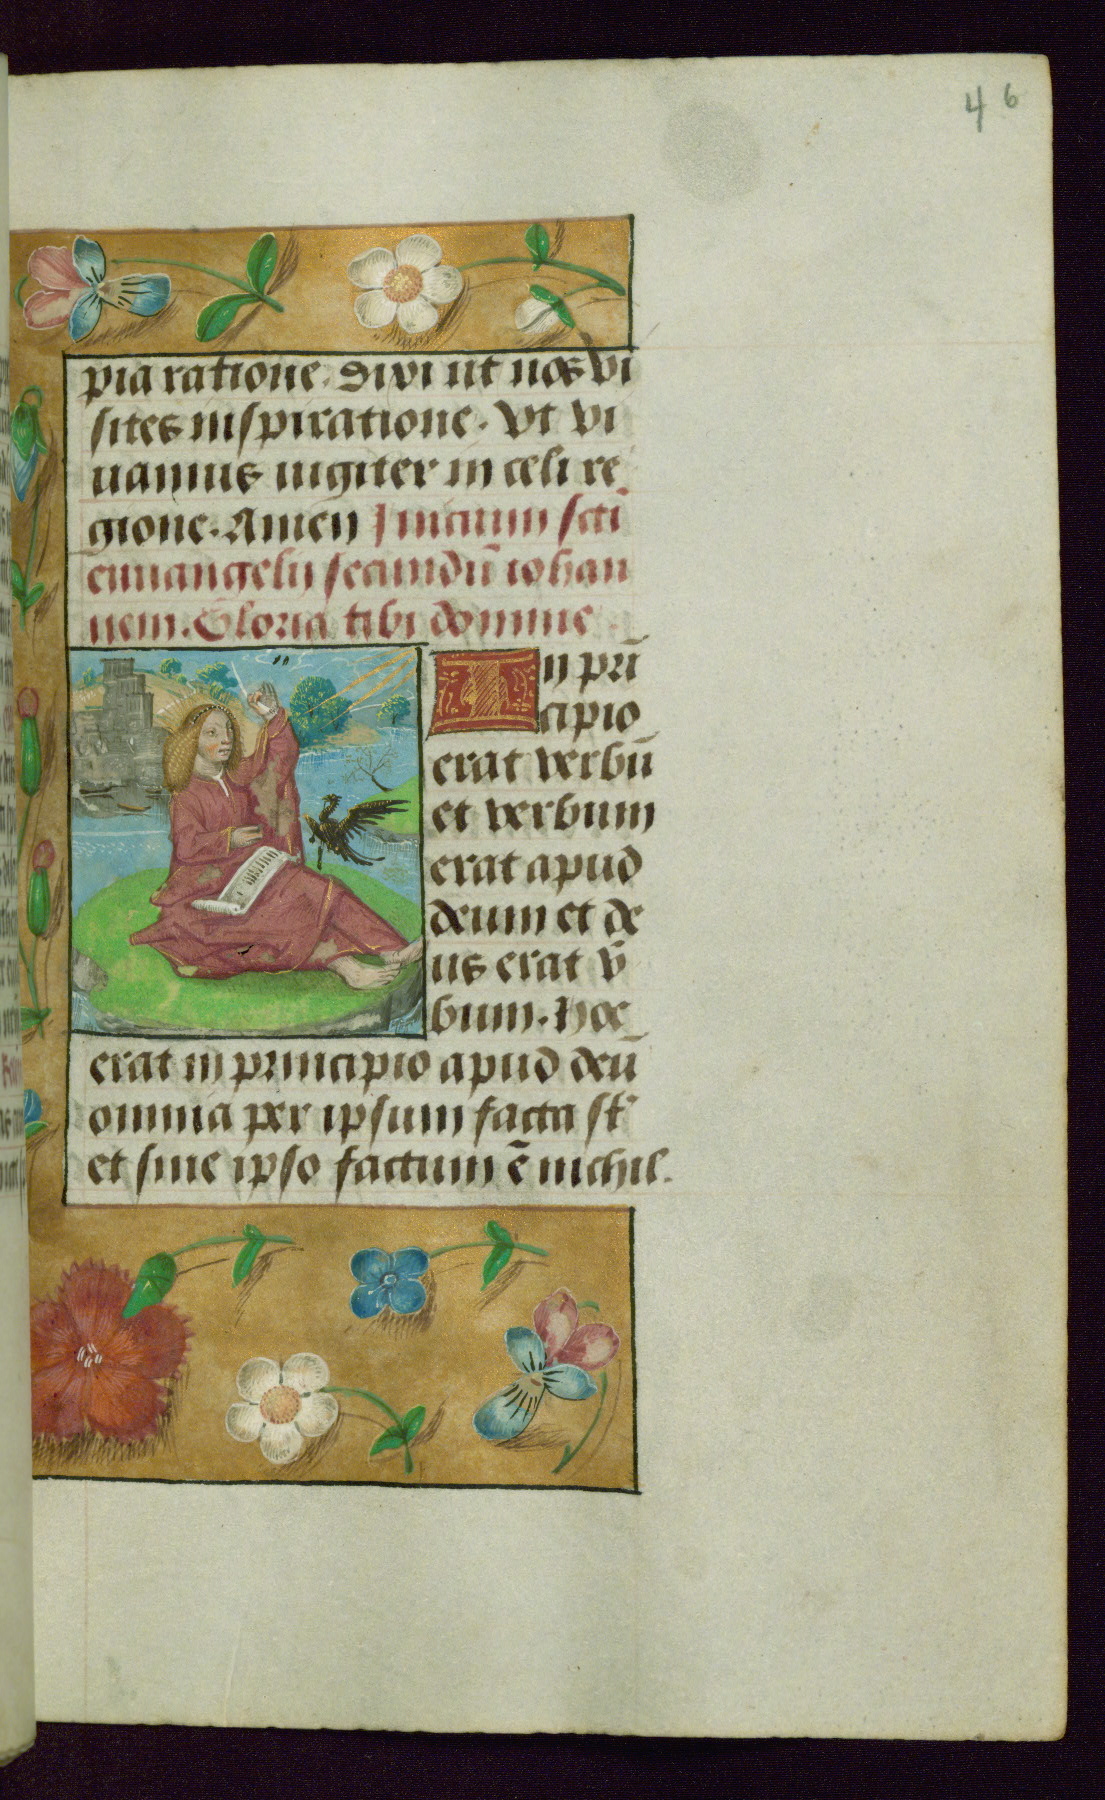 46
pia ratione. Divi ut nos vi
sites inspiratione. Ut vi
uamus iugiter in celi re
gione. Amen Inicium scti
euuangelij secundū iohan
nem. Gloria tibi domine.
In pri̅
cipio
erat verbū
et verbum
erat apud
deum et de
us erat v̄
bum. Hoc
erat in principio apud deū
omnia per ipsum facta st̄
et sine ipso factum ē nichil.